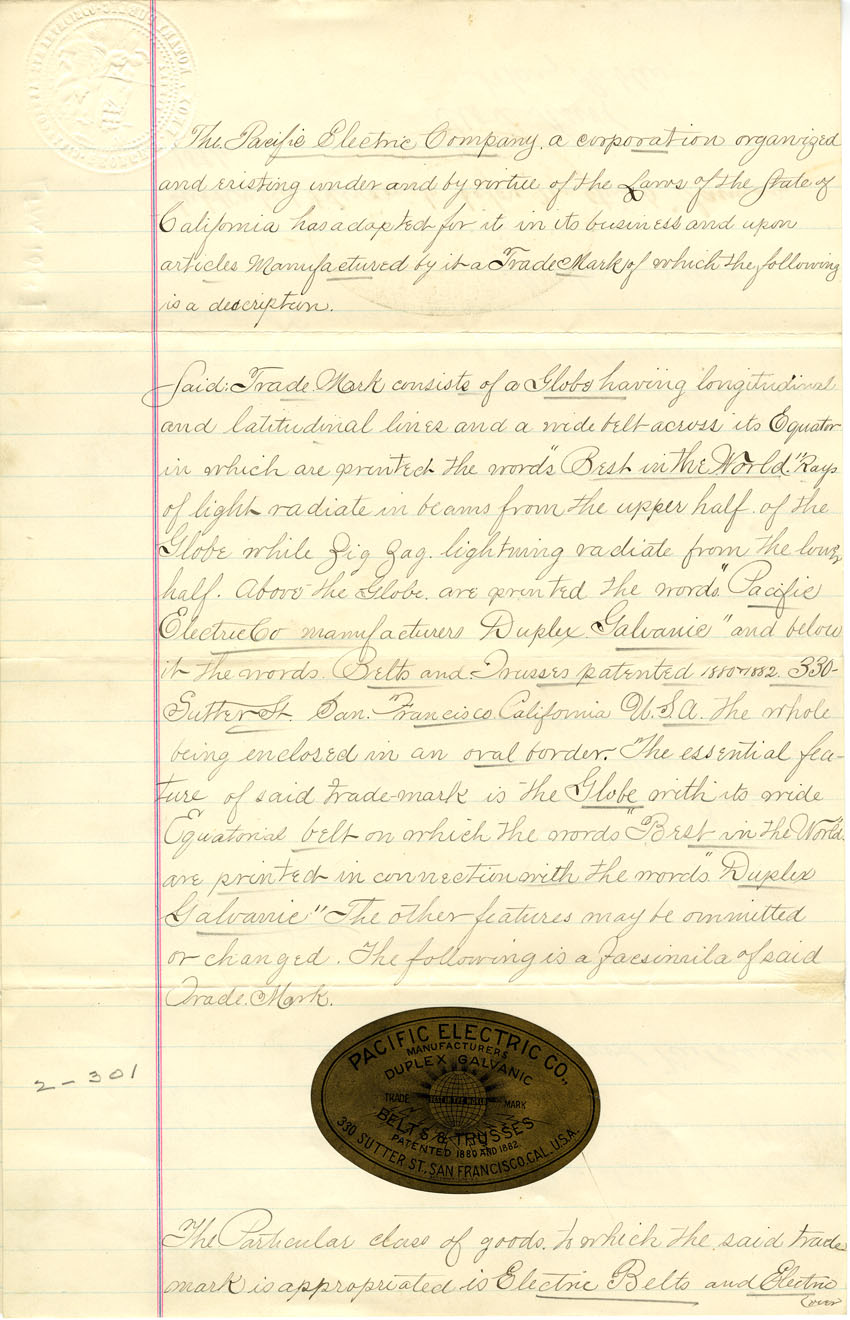 The Pacific Electric Company, a corporation organized
and existing under and by virtue of the Laws of the State of
California has adopted for it in its business and upon
articles Manufactured by it a Trade Mark of which the following
is a description.
Said: Trade Mark consists of a Globe having longitudinal
and latitudinal lines and a wide belt across its Equator
in which are printed the words "Best in the World." Rays
of light radiate in beams from the upper half of the
Globe while Zig Zag. lightning radiate from the lower
half. Above the Globe. are printed the words "Pacific
Electric Co manufacturers Duplex Galvanic" and below
it the words. Belts and Trusses patented 1880 & 1882. 330-
Sutter St. San. Francisco. California U.S.A. the whole
being enclosed in an oval border. The essential fea-
ture of said trade-mark is the Globe with its wide
Equatorial belt on which the words "Best in the World"
are printed in connection with the words "Duplex
Galvanic" The other features may be ommitted
or changed. The following is a facsimila of said
Trade. Mark.
2-301
PACIFIC ELECTRIC CO.,
MANUFACTURERS
DUPLEX GALVANIC
TRADE MARK
BEST IN THE WORLD
BELTS & TRUSSES
PATENTED 1880 AND 1882.
330 SUTTER ST. SAN FRANCISCO, CAL. U.S.A.
The Particular class of goods. to which the said trade
mark is appropriated is Electric Belts and Electric
(over